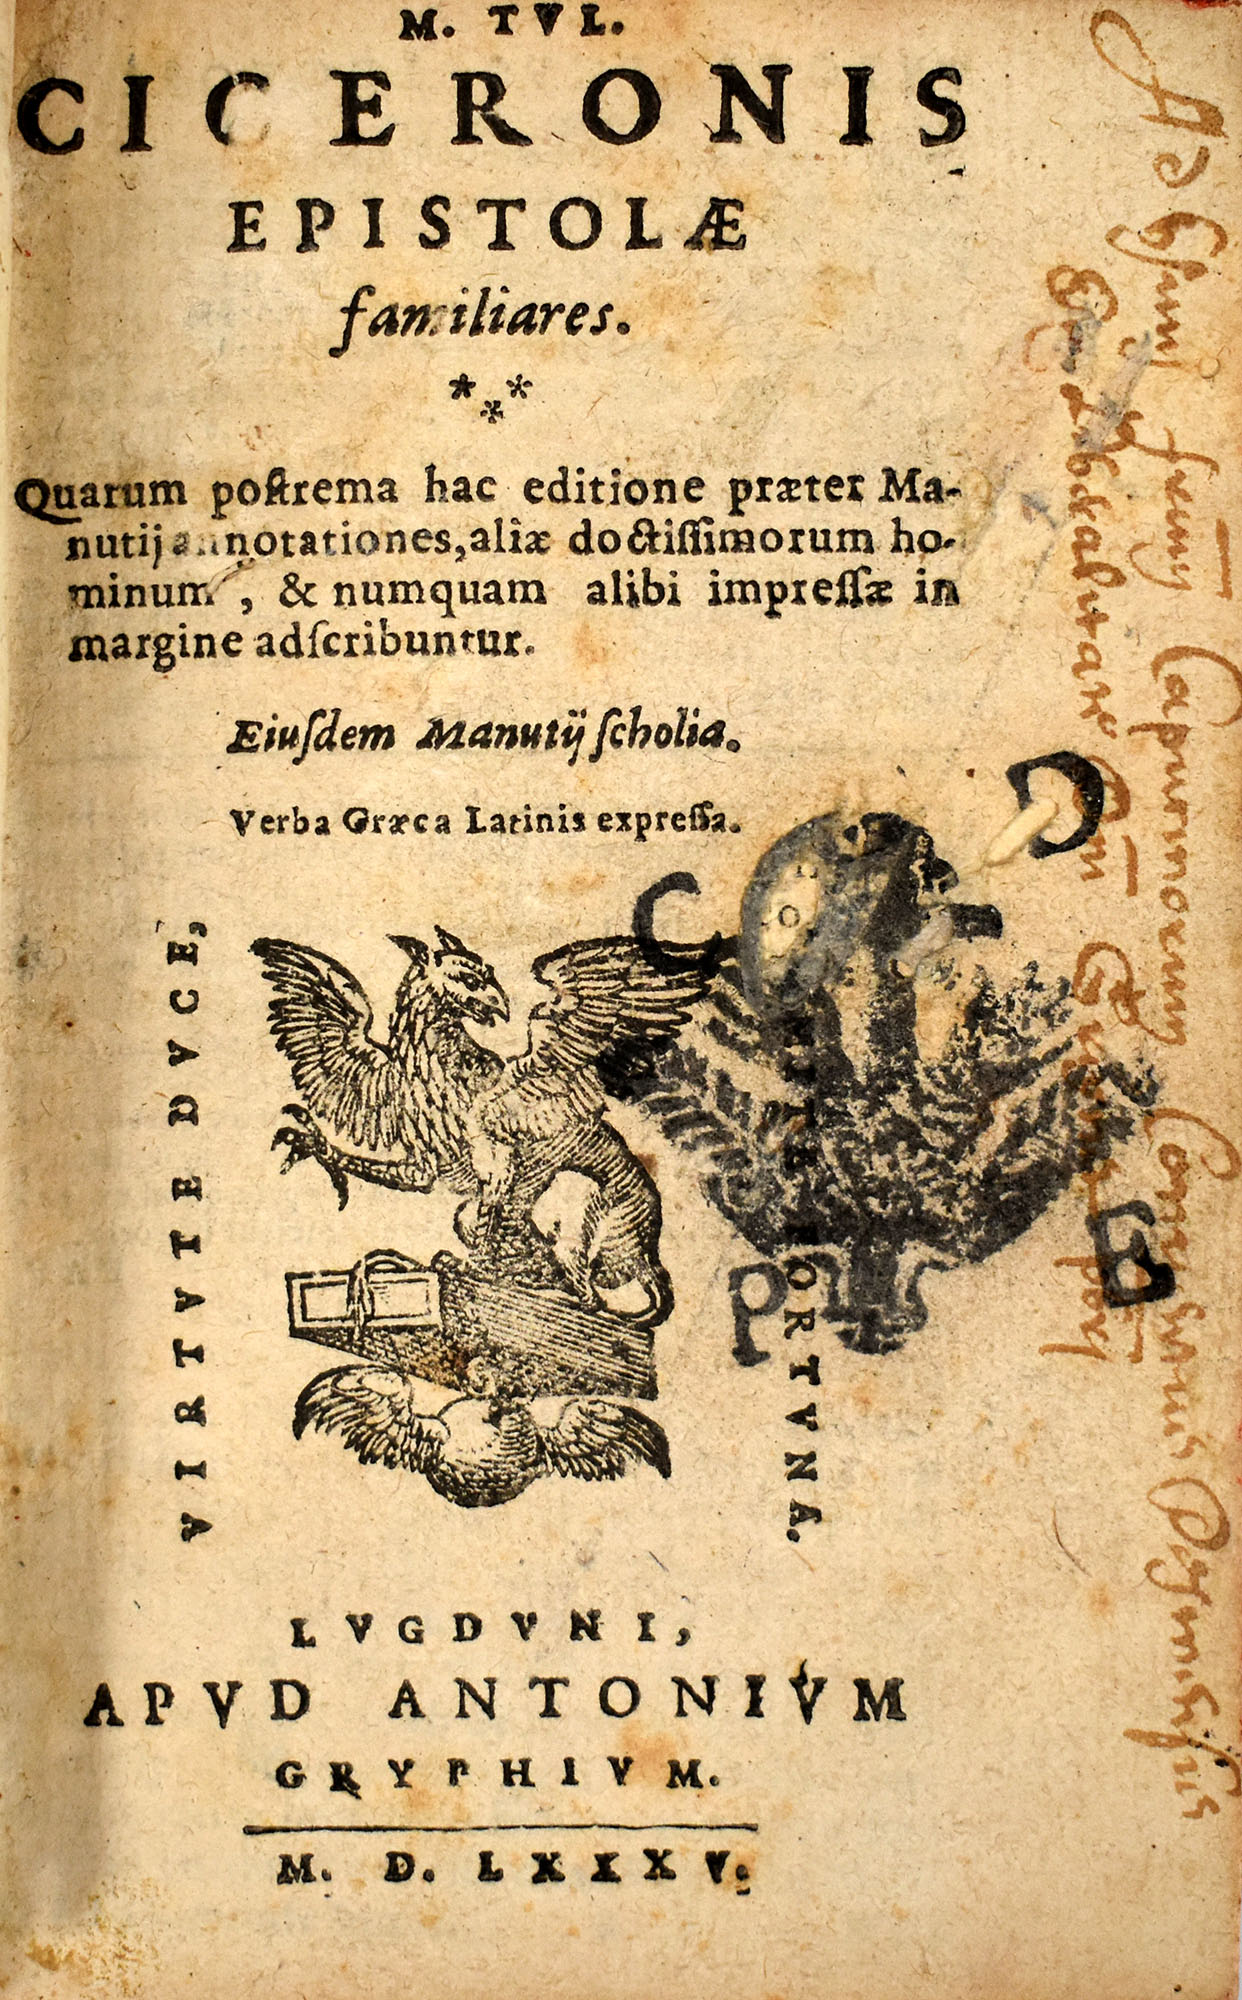 M. TVL.
CICERONIS
EPISTOLÆ
familiares.
Quarum postrema hac editione præter Ma-
nutij annotationes, aliæ doctissimorum ho-
minum, & numquam alibi impressæ in
margine adscribuntur.
Eiusdem Manutij scholia.
Verba Græca Latinis expressa.
VIRTVTE DVCE,
COMITE FORTVNA.
LVGDVNI,
APVD ANTONIVM
GRYPHIVM.
M. D. LXXXV.
Ad usum fratrum Capucinorum Conventus